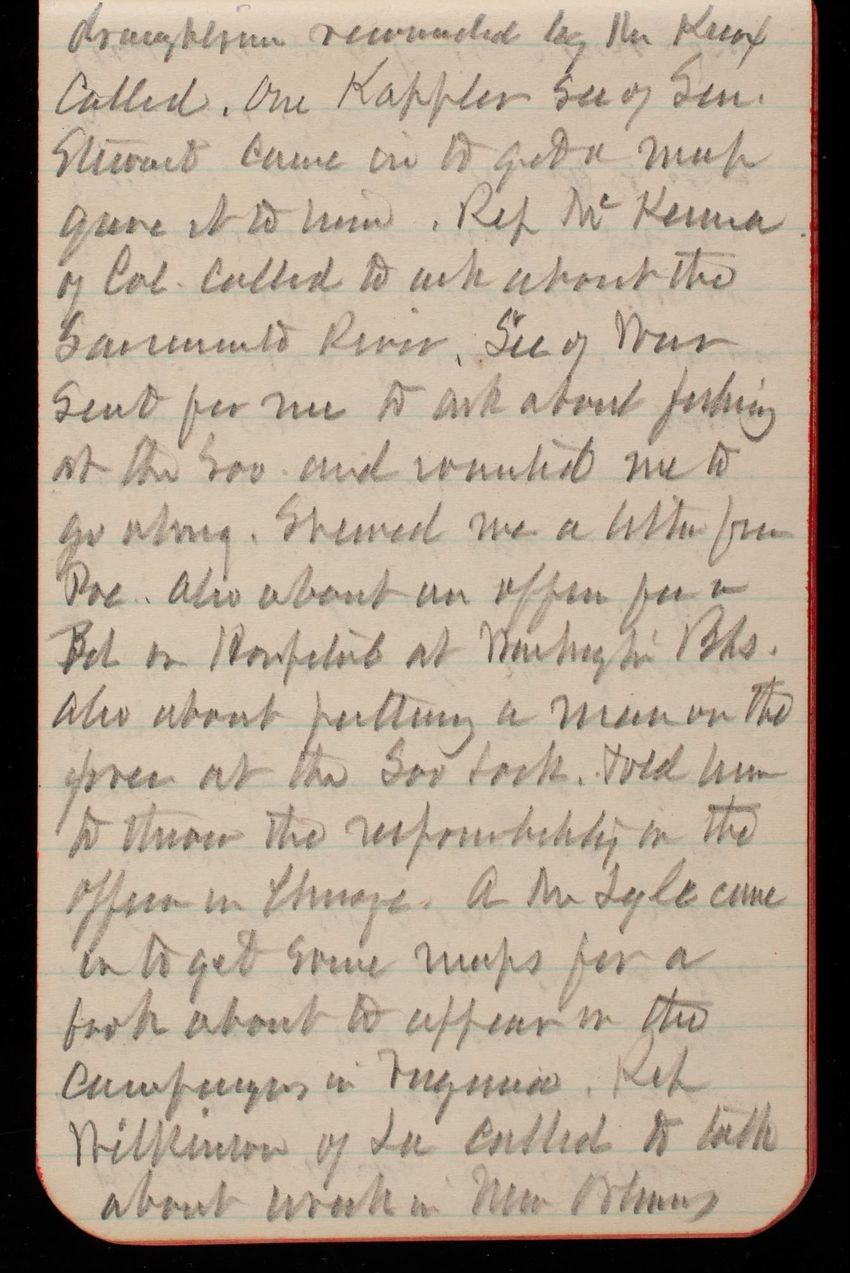 draughtsman recommended by Mr Knox
Called. One Kappler Sec of Sen.
Stewart came in to get a map
gave it to him. Rep McKenna
of Cal. Called to ask about the
Sacramento River. Sec of War
Sent for me to ask about fishing
at the Soo and wanted me to
go along. Showed me a letter from
Poe. Also about an offer for a
Bd on Hospital at Washington Bks.
Also about putting a man on the
at the Soo Lock. Told him
to throw the responsibility on the
Officer in Charge. A Mr Lyle came
in to get some maps for a
book about to appear on the
Campaigns in Virginia. Rep
Wilkinson of La called to talk
about work in New Orleans